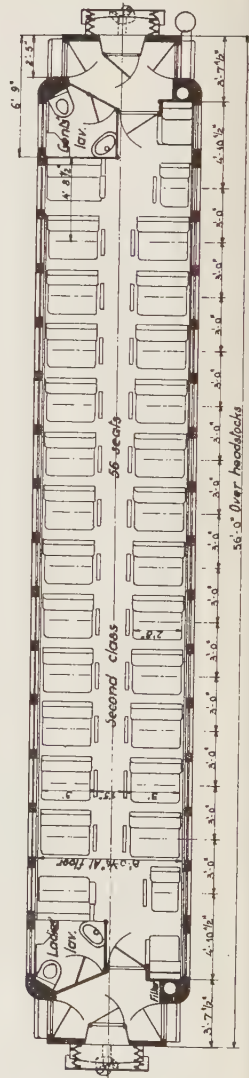 6'. 9"
2'. 5"
Gents'
lav.
4'. 8½"
56 seats
Second class
2'.8"
At floor
Ladies'
lav.
Filter
3'-7½"
4'-10½"
3'-0"
3'-0"
3'-0"
3'-0"
3'-0"
3'-0"
3'-0"
3'-0"
3'-0"
3'-0"
3'-0"
4'-10½"
3'-7½"
56'-0" Over headstocks